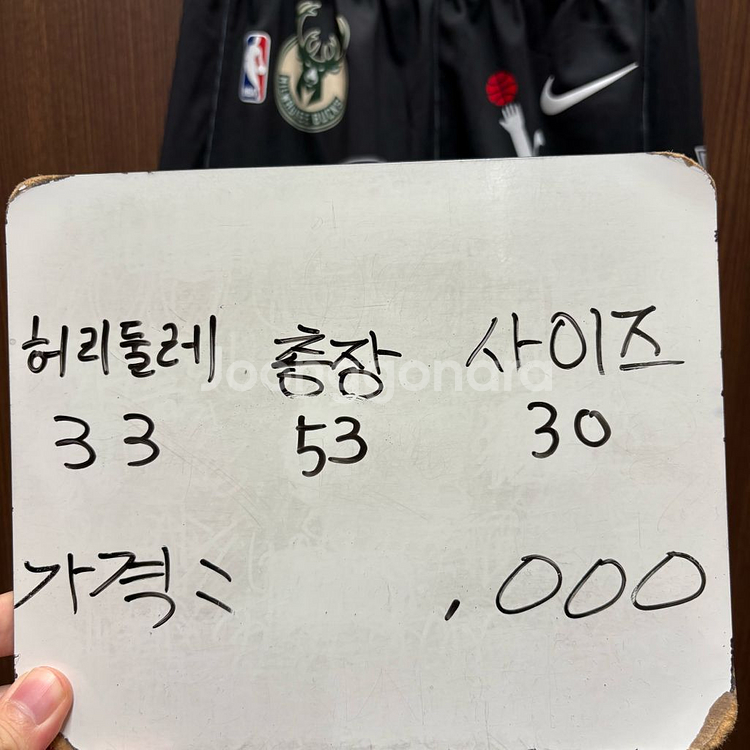 NBA
MILWAUKEE BUCKS
허리둘레 총장 사이즈
33 53 30
Joonggonara
가격: ,000